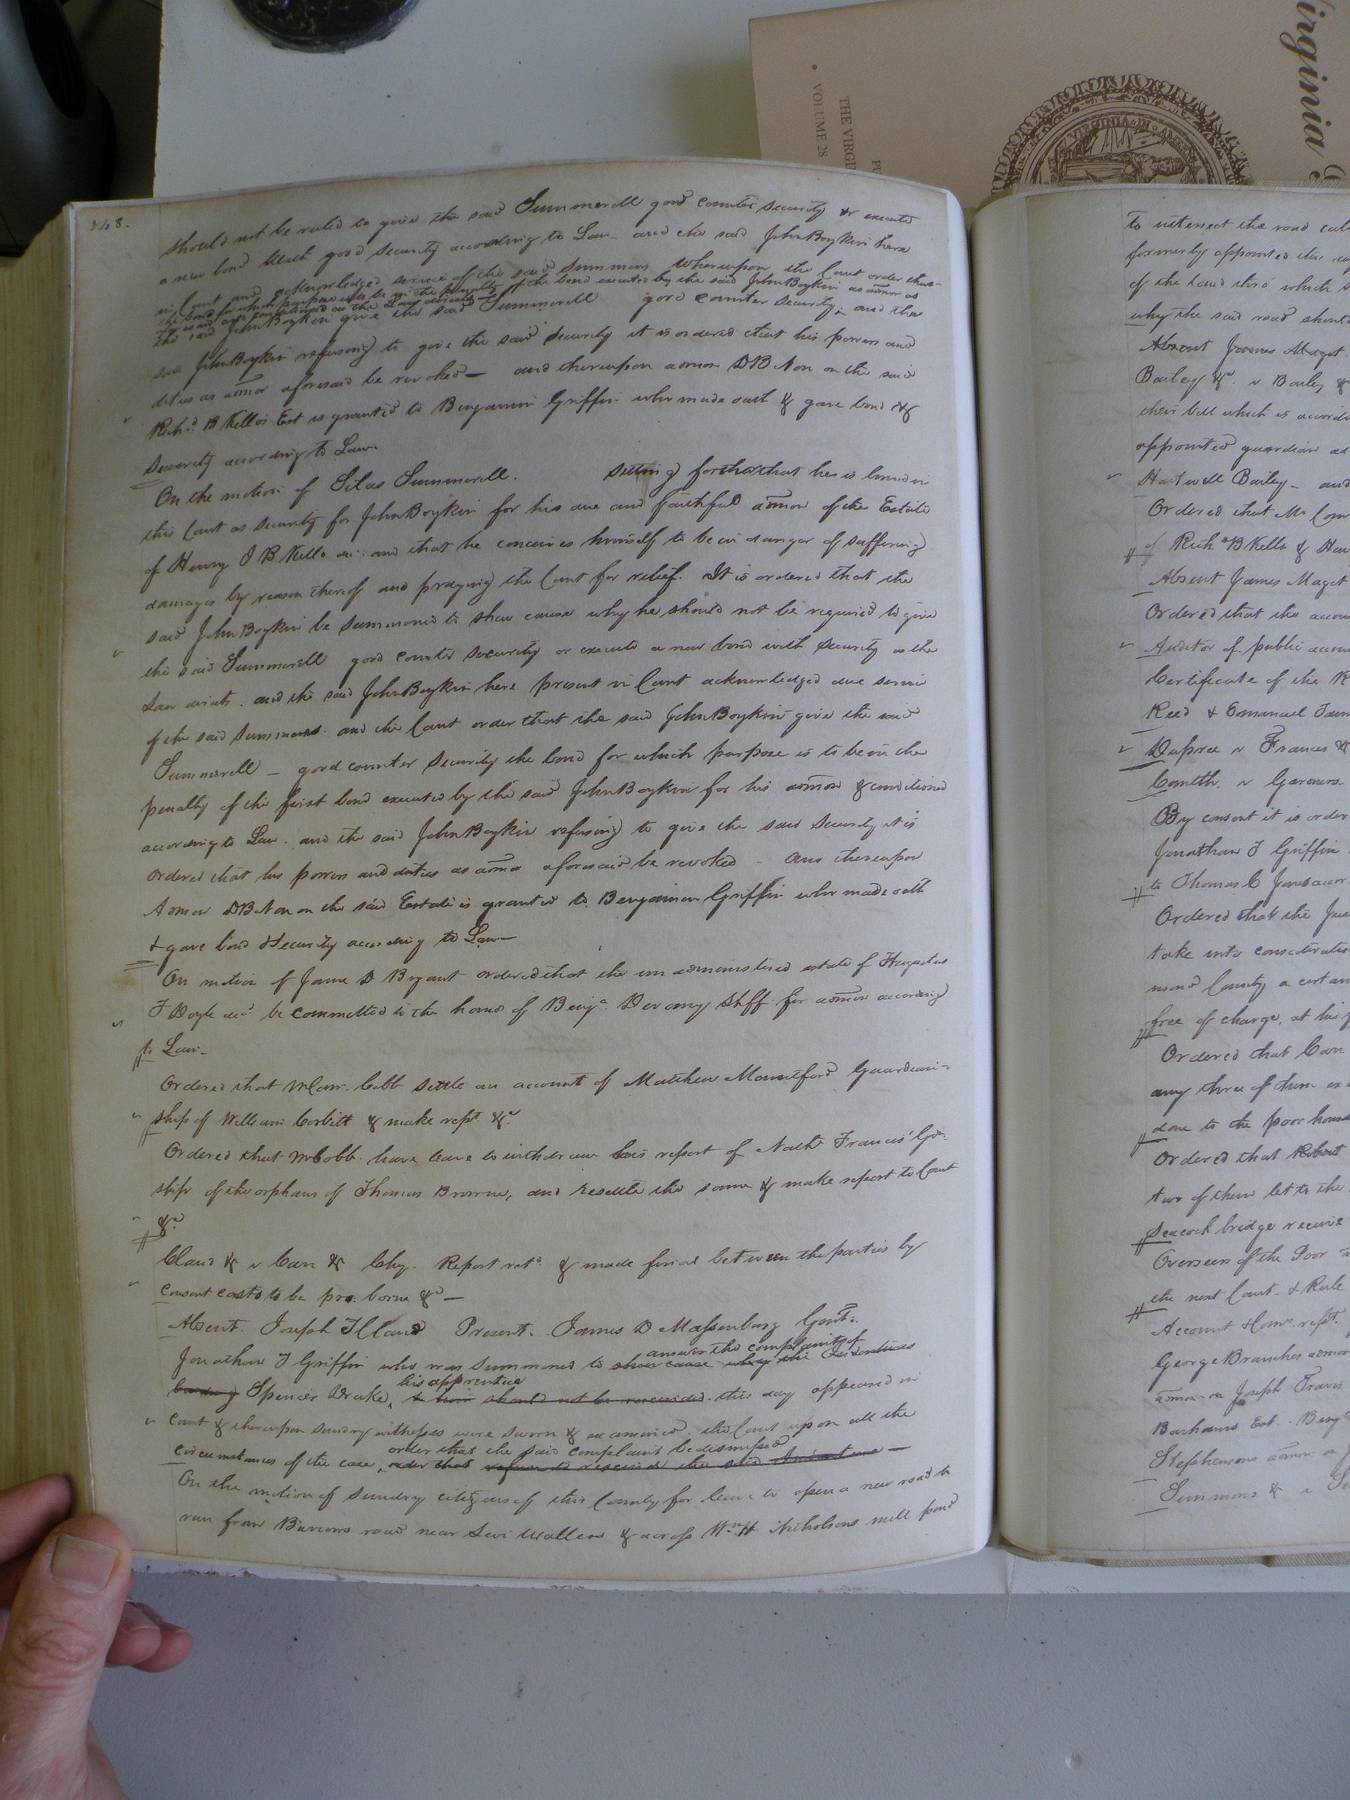 Virginia
THE VIRGI
VOLUME 28
VIRGINIA
348.
should not be ruled to give the said Summerell good counter security & execute
a new bond with good security according to Law and the said John Boykin here
in Court and acknowledges service of the said summons Whereupon the Court order that
the bond for which purpose is to be in the penalty of the bond executed by the said John Boykin as admor as
the said John Boykin give the said Summerell good counter security, and the
said John Boykin refusing to give the said security it is ordered that his powers and
duties as admor aforesaid be revoked — and thereupon admon DB Non on the said
Richd B Kello's Est is granted to Benjamin Griffin who made oath & gave bond &
Security according to Law
On the motion of Silas Summerell. setting forth that he is bound in
this Court as security for John Boykin for his due and faithful admon of the Estate
of Henry J B Kello and that he conceives himself to be in danger of suffering
damages by reason thereof and praying the Court for relief. It is ordered that the
said John Boykin be summoned to shew cause why he should not be required to give
the said Summerell good counter security or execute a new bond with security as the
Law directs. and the said John Boykin here present in Court acknowledged due service
of the said summons and the Court order that the said John Boykin give the said
Summerell — good counter security the bond for which purpose is to be in the
penalty of the first bond executed by the said John Boykin for his admon & conditioned
according to Law. and the said John Boykin refusing to give the said security it is
ordered that his powers and duties as admor aforesaid be revoked — and thereupon
Admon DB Non on the said Estate is granted to Benjamin Griffin who made oath
& gave bond & security according to Law—
On motion of James D Bryant ordered that the unadministered estate of
F Doyle decd be committed to the hands of Benja Devany Shff for admon according
to Law—
Ordered that Wm Cobb settle an account of Matthew Mountford Guardian-
ship of William Corbitt & make rept &c
Ordered that Mr Cobb have leave to withdraw his report of Nathl Francis' Gd-
ship of the orphans of Thomas Browne, and resettle the same & make report to Court
&c
Claud & v Carr & Chy. Report retd & made final between the parties by
consent costs to be pro. borne &c —
Absent. Joseph T Claud Present. James D Massenburg Gent.
answer the complaint of
Jonathan T Griffin who was summoned to shew cause why the Indentures
his apprentice
binding Spencer Drake, to him should not be rescinded. this day appeared in
Court & thereupon sundry witnesses were sworn & examined. the Court upon all the
order that the said complaint be dismissed
circumstances of the case, order that refuse to rescind the said Indenture —
On the motion of sundry citizens of this County for leave to open a new road to
run from Barrows road near Levi Wallers & across Wm H Nicholsons mill pond
to intersect the road
formerly appointed
of the land thro' which
why the said road should
Absent James Maget
Bailey &c. v Bailey &
their bill which is
appointed guardian
Hartwell Bailey — and
Ordered that
of Richd B Kello & Hen
Absent James Maget
Ordered that the
Auditor of public
Certificate of the
Reed & Emanuel
Dupree v Francis &
Comth. v Gardner
By consent it is order
Jonathan T Griffin
to Thomas C Jones
Ordered that the
take into consideration
County a certain
free of charge, at his
Ordered that
any three of them
done to the poor house
Ordered that Robert
two of them let to the
Peacock bridge receive
Overseers of the Poor
the next Court & Rule
Account
George Branches admor
admor on Joseph Travis
Barhams Est.
Stephensons admor
Simmons & v